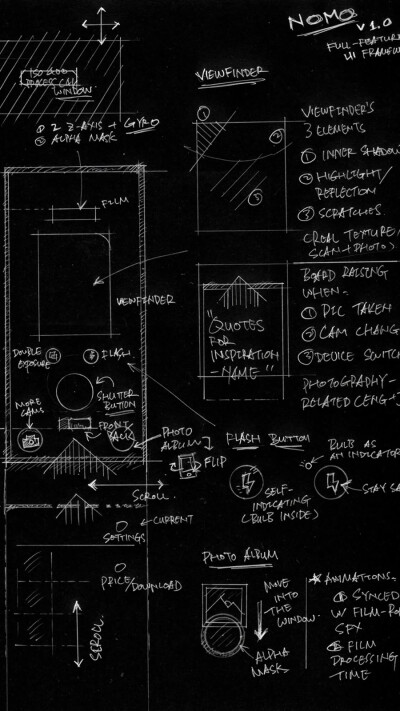 NOMO V1.0
FULL-FEATURE
UI FRAMEW
ISO 400
PROCESS C41
WINDOW
① 2 Z-AXIS + GYRO
② ALPHA MASK
FILM
VIEWFINDER
DOUBLE
EXPOSURE
FLASH
SHUTTER
BUTTON
MORE
CAMS
FRONT/
BACK
PHOTO
ALBUM
FLIP
SCROLL
CURRENT
SETTINGS
PRICE/DOWNLOAD
SCROLL
VIEWFINDER
①
②
③
VIEWFINDER'S
3 ELEMENTS
① INNER SHADOW
② HIGHLIGHT/
REFLECTION
③ SCRATCHES
(REAL TEXTURE/
SCAN+PHOTO)
"QUOTES
FOR
INSPIRATION
-NAME"
BOARD RAISING
WHEN-
① PIC TAKEN
② CAM CHANG
③ DEVICE SWITCH
PHOTOGRAPHY-
RELATED
FLASH BUTTON
SELF-
INDICATING
(BULB INSIDE)
BULB AS
AN INDICATOR
STAY SA
PHOTO ALBUM
MOVE
INTO
THE
WINDOW.
ALPHA
MASK
★ ANIMATIONS-
① SYNCED
W/ FILM-RO
SFX
② FILM
PROCESSING
TIME